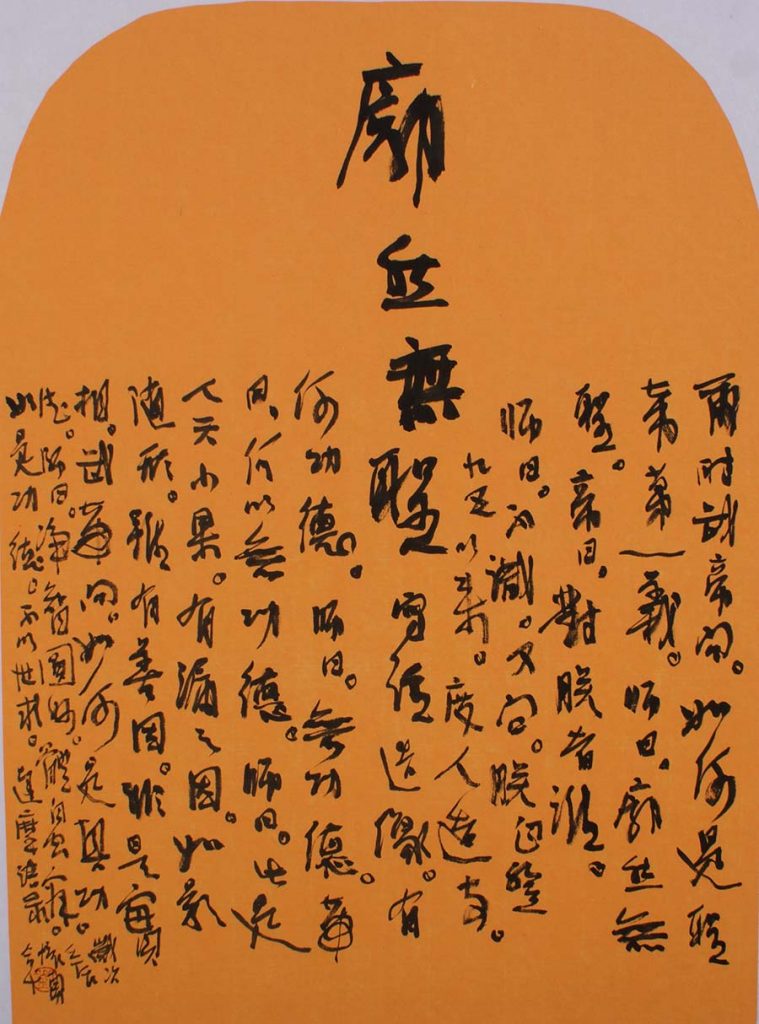 廓然無聖
爾時武帝問。如何是聖
帝第一義。師曰。廓然無
聖。帝曰。對朕者誰。
師曰。不識。又問。朕自登
九五以來。度人造寺。
寫經造像。有
何功德。師曰。無功德。帝
曰。何以無功德。師曰。此是
人天小果。有漏之因。如影
隨形。雖有善因。非是實
相。武帝問。如何是真功。
德。師曰。淨智圓妙。體自空寂。
如是功德。不以世求。達摩語录。
歲次